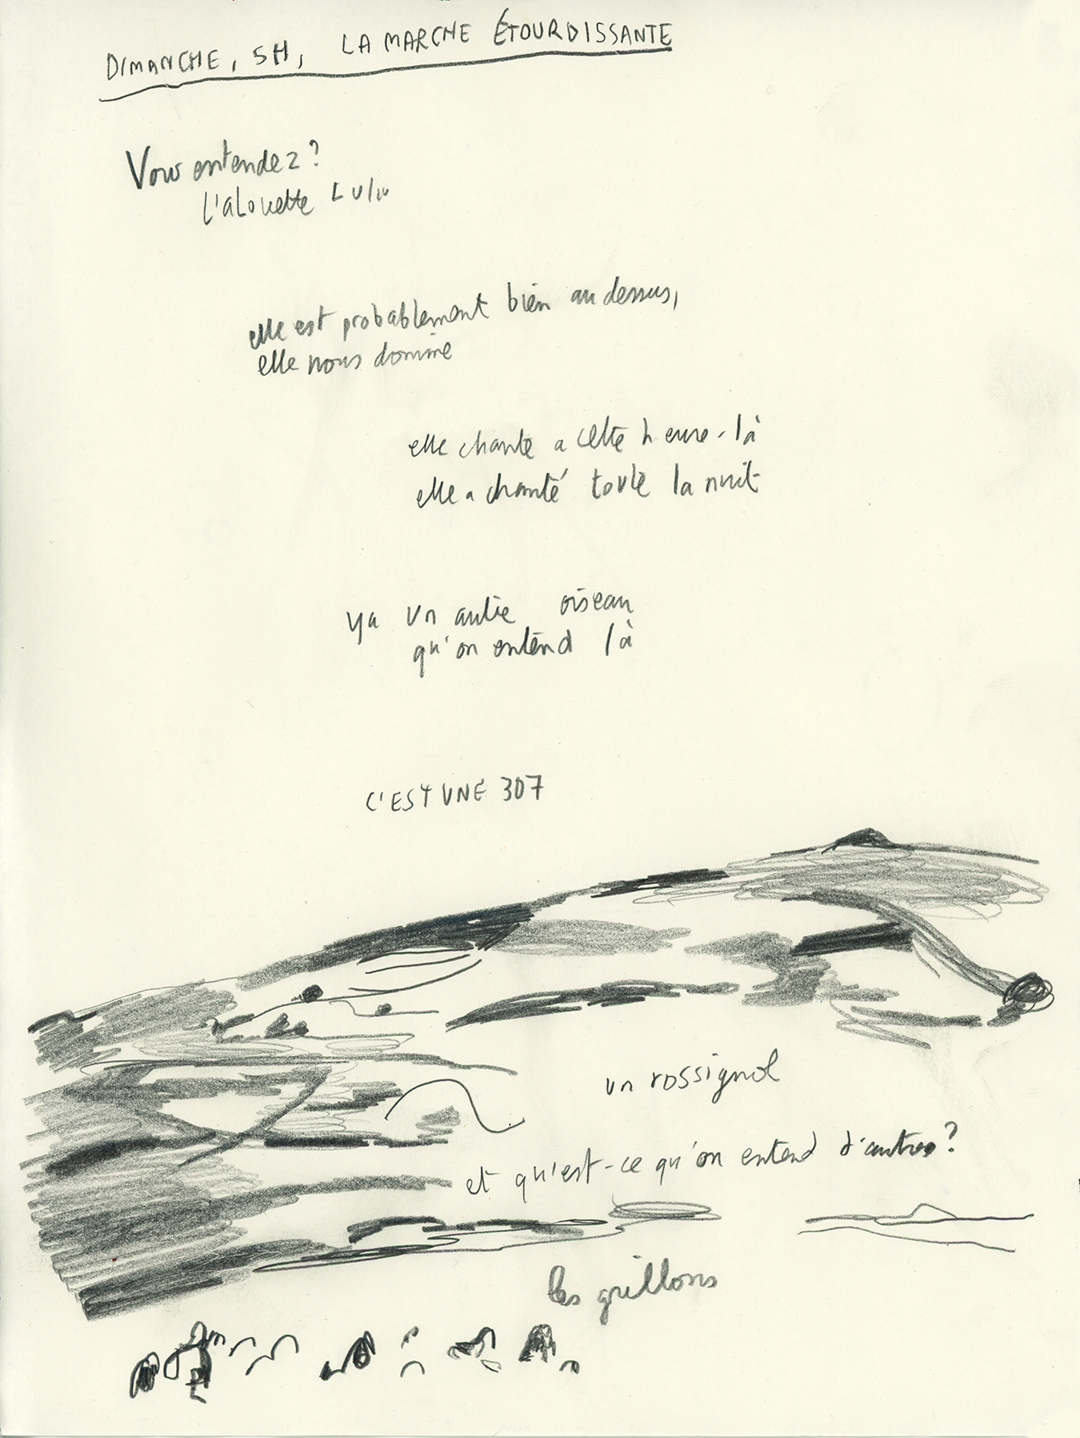 DIMANCHE, 5H, LA MARCHE ÉTOURDISSANTE
Vous entendez ?
l'alouette Lulu
elle est probablement bien au dessus,
elle nous domine
elle chante a cette heure-là
elle a chanté toute la nuit
ya un autre oiseau
qu'on entend là
C'EST UNE 307
un rossignol
et qu'est-ce qu'on entend d'autres ?
les grillons